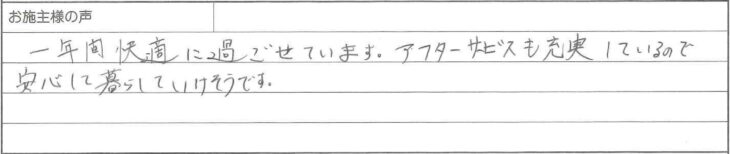 お施主様の声
一年間快適に過ごせています。アフターサービスも充実しているので
安心して暮らしていけそうです。